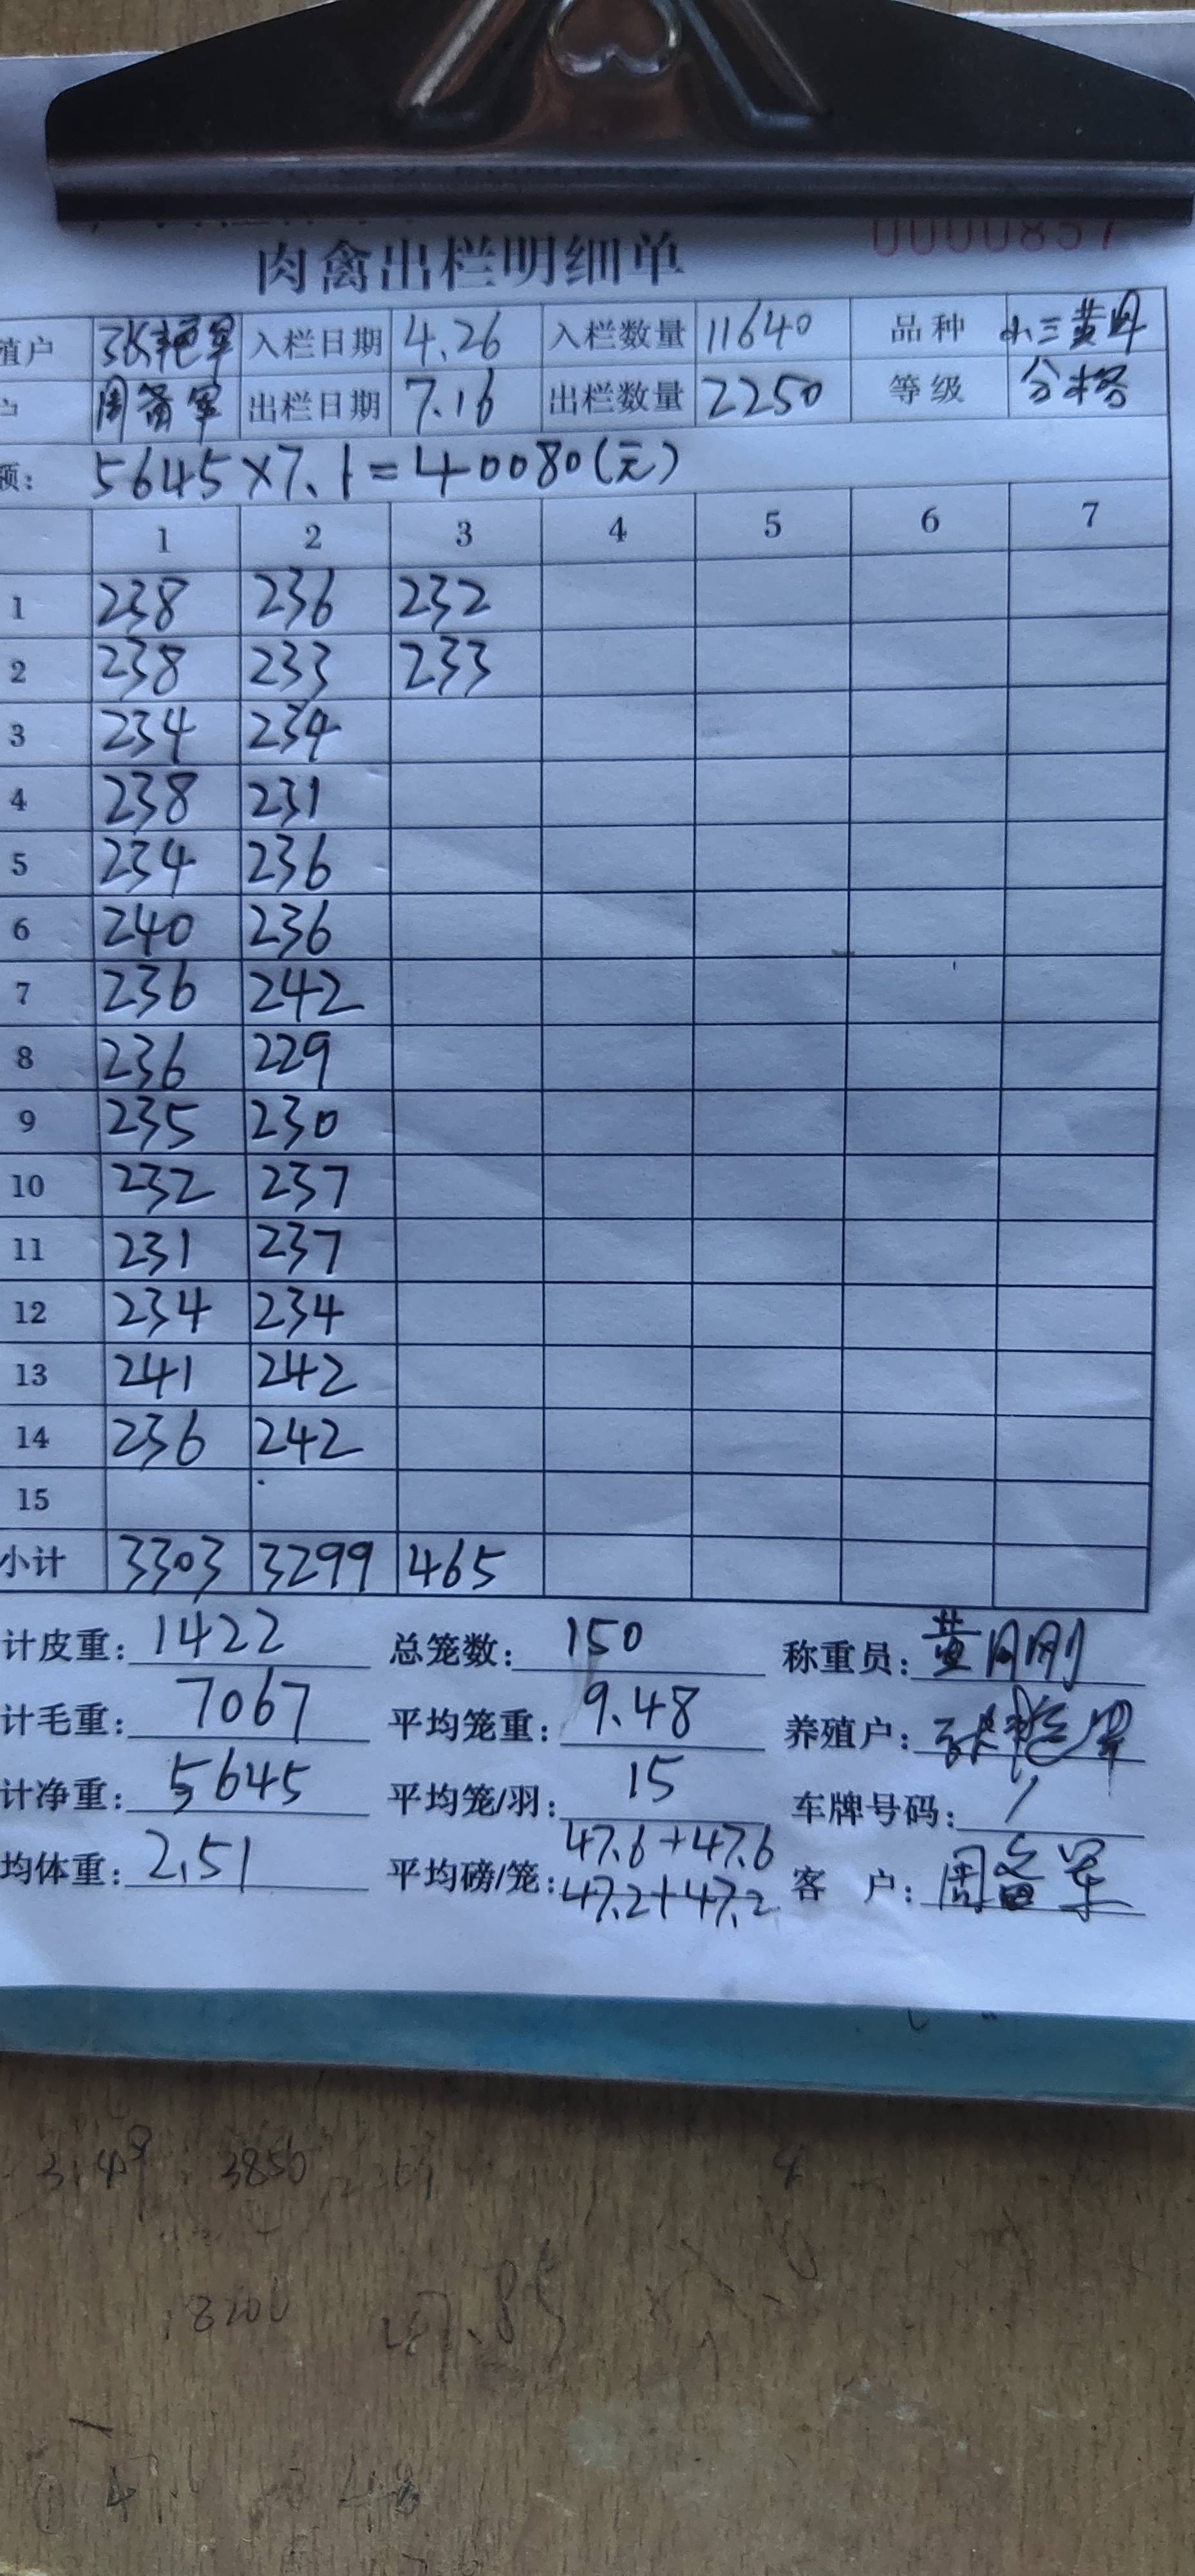 0000857
肉禽出栏明细单
殖户 张艳军 入栏日期 4.26 入栏数量 11640 品种 小三黄母
户 周备军 出栏日期 7.16 出栏数量 2250 等级 分格
额: 5645×7.1=40080(元)
1 2 3 4 5 6 7
1 238 236 232
2 238 233 233
3 234 234
4 238 231
5 234 236
6 240 236
7 236 242
8 236 229
9 235 230
10 232 237
11 231 237
12 234 234
13 241 242
14 236 242
15
小计 3303 3299 465
计皮重: 1422 总笼数: 150 称重员: 黄刚刚
计毛重: 7067 平均笼重: 9.48 养殖户: 张艳军
计净重: 5645 平均笼/羽: 15 车牌号码: /
均体重: 2.51 平均磅/笼: 47.6+47.6 47.2+47.2 客 户: 周备军
3850